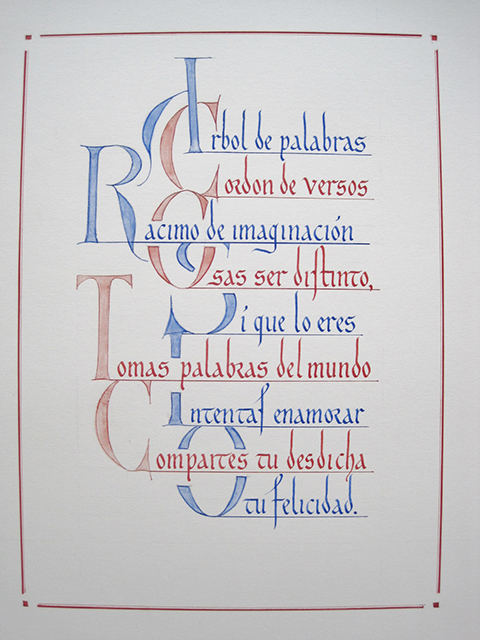 Arbol de palabras
Cordon de versos
Racimo de imaginación
Osas ser distinto,
Si que lo eres
Tomas palabras del mundo
Intentas enamorar
Compartes tu desdicha
O tu felicidad.